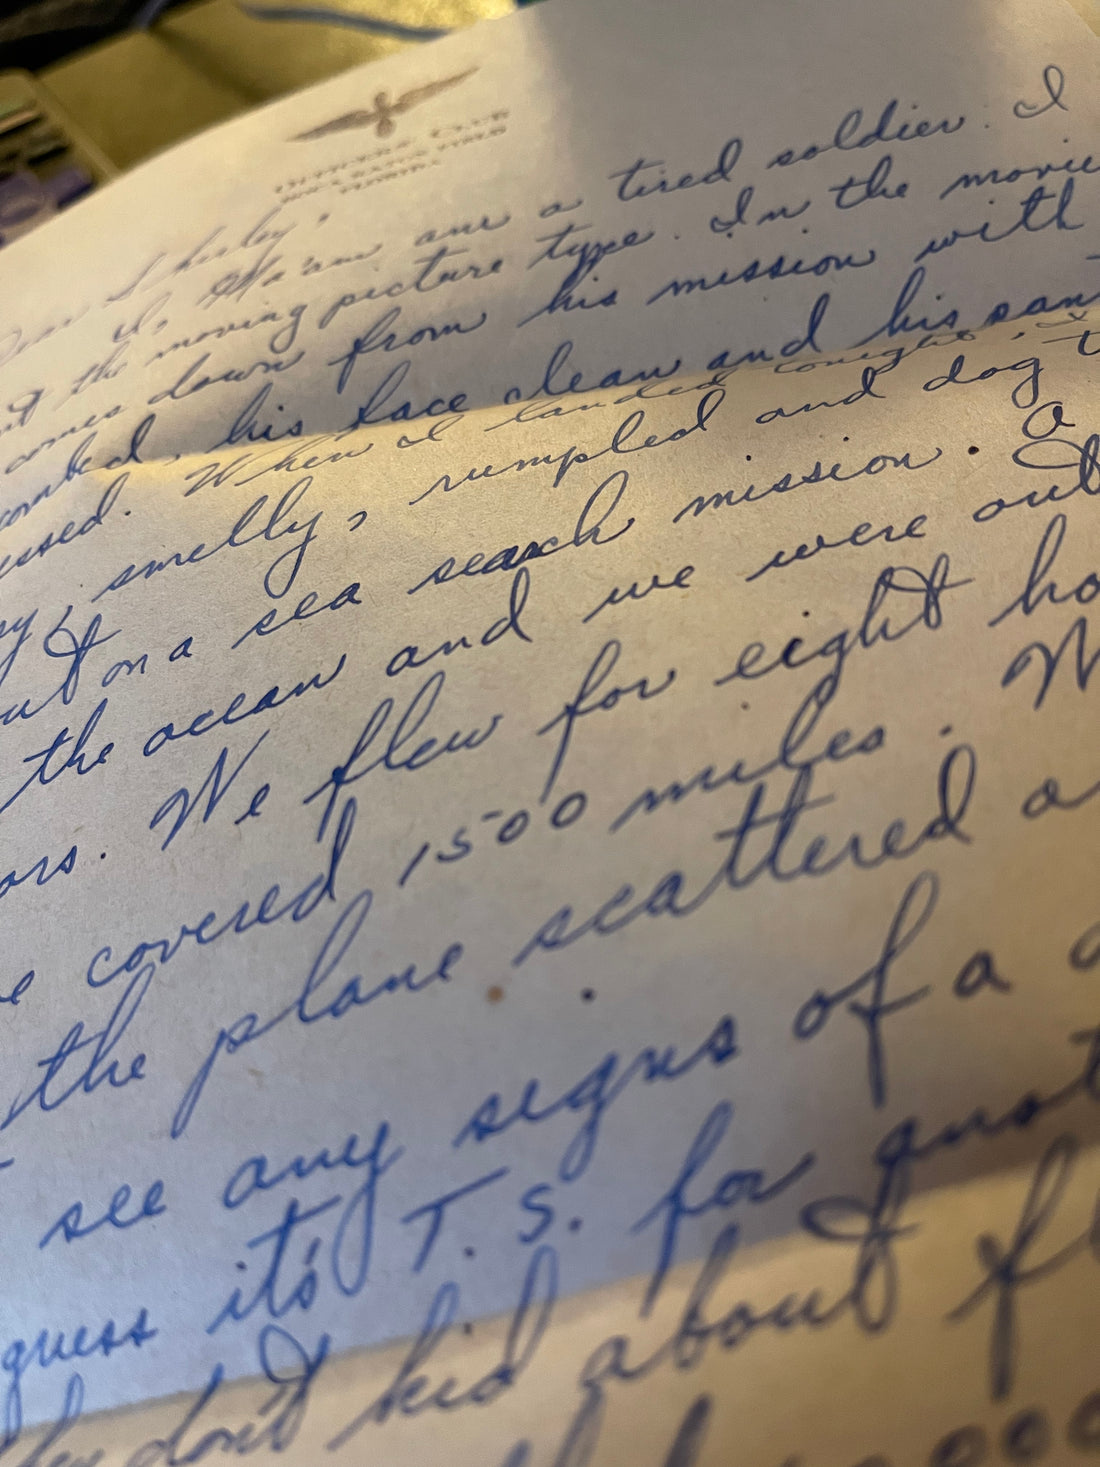 OFFICERS CLUB
BOCA RATON FIELD
FLORIDA
Dear Shirley,
I, Ma'am am a tired soldier. I
the moving picture type. In the movie
comes down from his mission with
combed, his face clean and his
When I landed tonight, I
smelly, rumpled and dog
out on a sea search mission. A
the ocean and we were out
We flew for eight
covered 1500 miles.
the plane scattered
see any signs of a
guess it's T. S. for
don't kid about